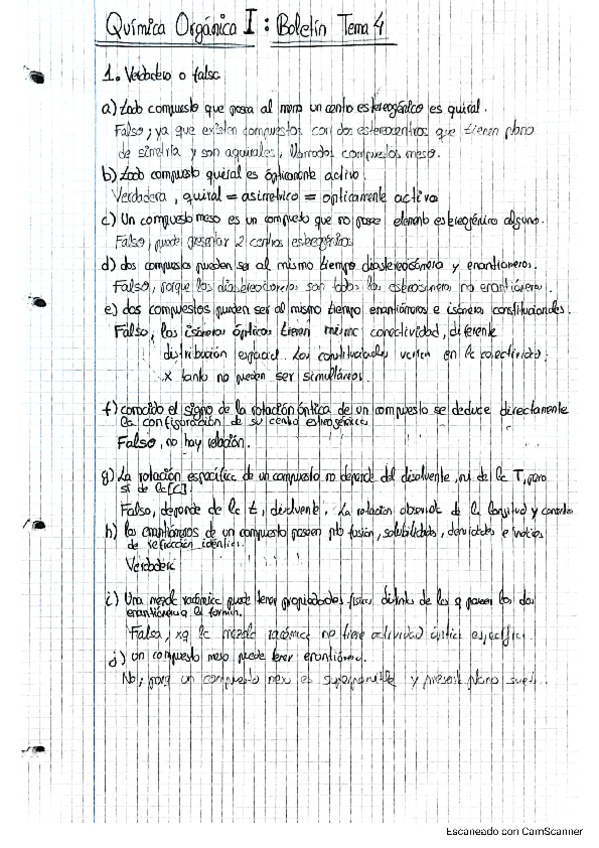 Química Orgánica I : Boletín Tema 4
1. Verdadero o falso
a) todo compuesto que posea al menos un centro estereogénico es quiral.
Falso; ya que existen compuestos con dos estereocentros que tienen plano
de simetría y son aquirales, llamados compuestos meso.
b) todo compuesto quiral es ópticamente activo.
Verdadera, quiral = asimetrico = opticamente activo
c) Un compuesto meso es un compuesto que no posee elemento estereogénico alguno.
Falso, puede presentar 2 centros estereogénicos
d) dos compuestos pueden ser al mismo tiempo diastereoisómeros y enantiómeros.
Falso, porque los diastereoisómeros son todos los estereoisómeros no enantiómeros.
e) dos compuestos pueden ser al mismo tiempo enantiómeros e isómeros constitucionales.
Falso, los isómeros ópticos tienen misma conectividad, diferente
distribución espacial. Los constitucionales varían en la conectividad;
x tanto no pueden ser simultáneos.
f) conocido el signo de la rotación óptica de un compuesto se deduce directamente
la configuración de su centro estereogénico.
Falso, no hay relación.
g) La rotación específica de un compuesto no depende del disolvente, ni de la T, pero
sí de la [C].
Falso, depende de la t, disolvente. La rotacion observada de la longitud y
h) los enantiómeros de un compuesto poseen pto fusión, solubilidades, densidades e índices
de refracción idénticos.
Verdadera
i) Una mezcla racémica puede tener propiedades físicas distintas de las q poseen los dos
enantiómeros q la forman.
Falsa, xq la mezcla racémica no tiene actividad óptica específica.
j) un compuesto meso puede tener enantiómeros.
No, porq un compuesto meso es superponible y presenta plano
Escaneado con CamScanner